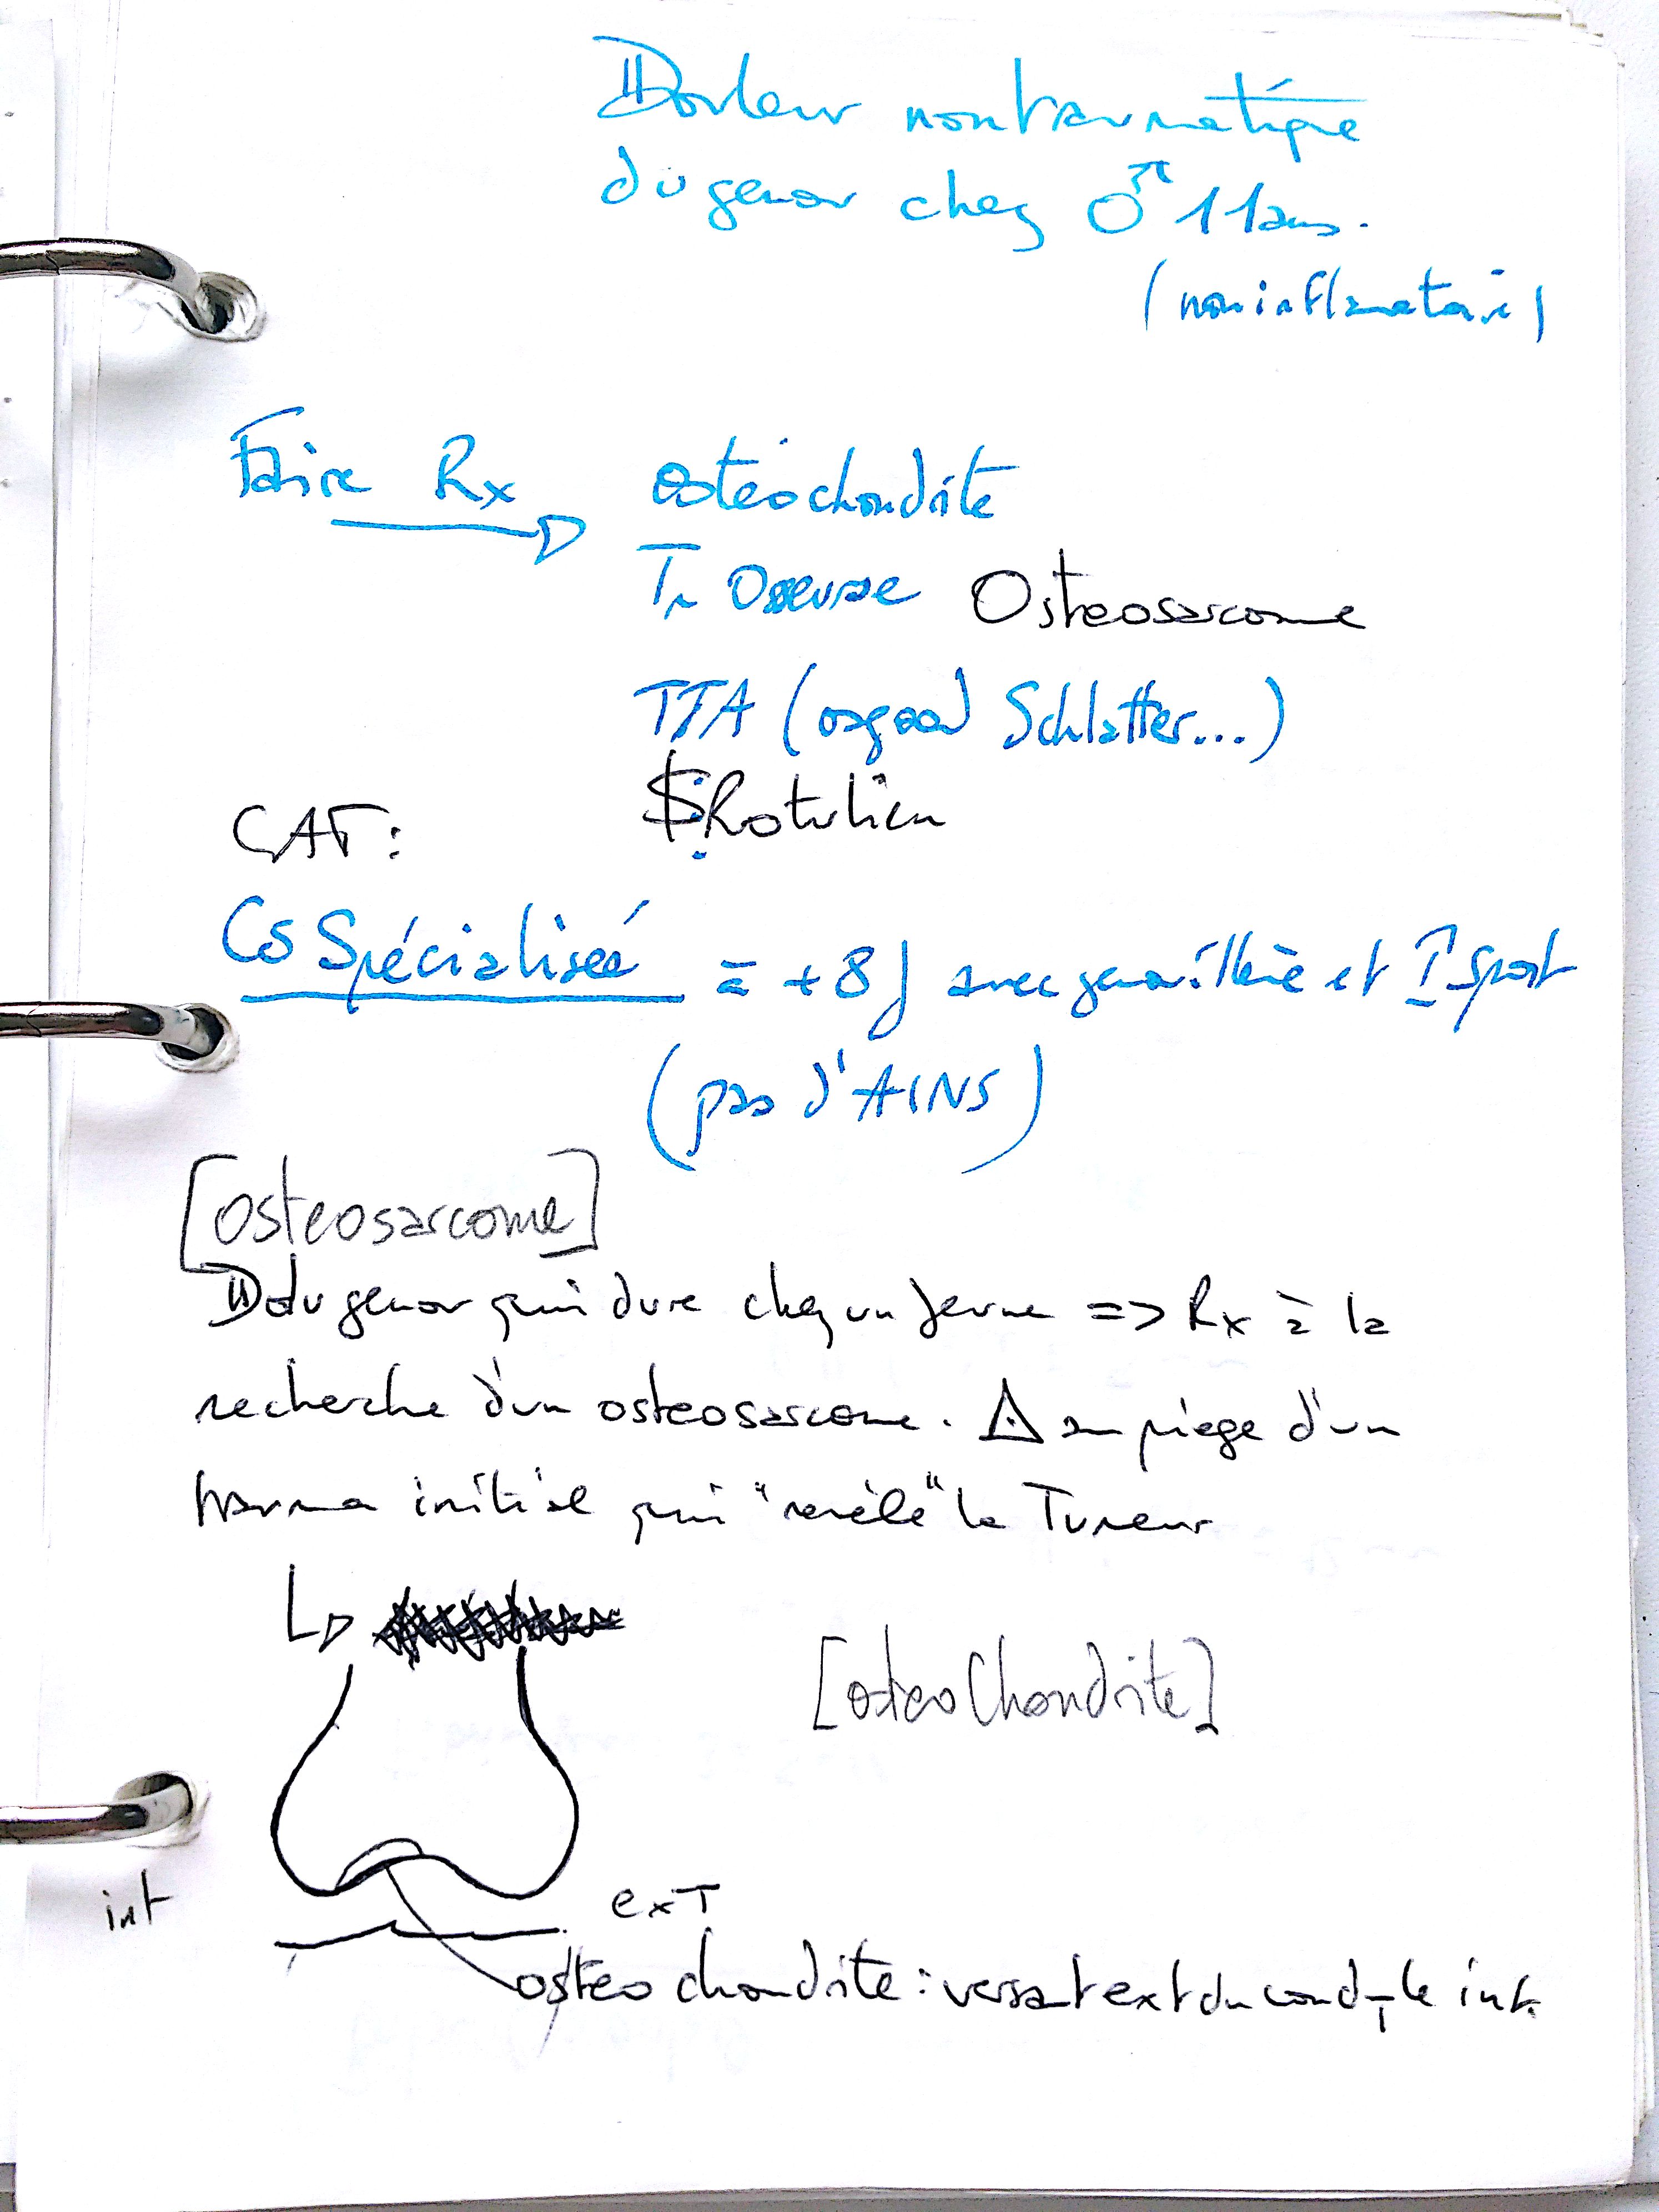 Douleur nontraumatique
du genou chez ♂ 11ans.
(noninflamatoire)
Faire Rx → ostéochondrite
Tr Osseuse Osteosarcome
TTA (osgood Schlatter...)
$ Rotulien
CAT:
CS Spécialisée à +8j avec genouillère et I Sport
(pas d'AINS)
[osteosarcome]
D du genou qui dure chez un Jeune => Rx à la
recherche d'un osteosarcome. ⚠ au piege d'un
trauma initial qui "revèle" la Tumeur
[osteoChondrite]
int
exT
osteochondrite: versant ext du condyle int.